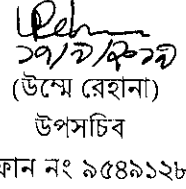 ১৭/৯/২০১৯
(উম্মে রেহানা)
উপসচিব
ফোন নং ৯৫৪৯১২৮